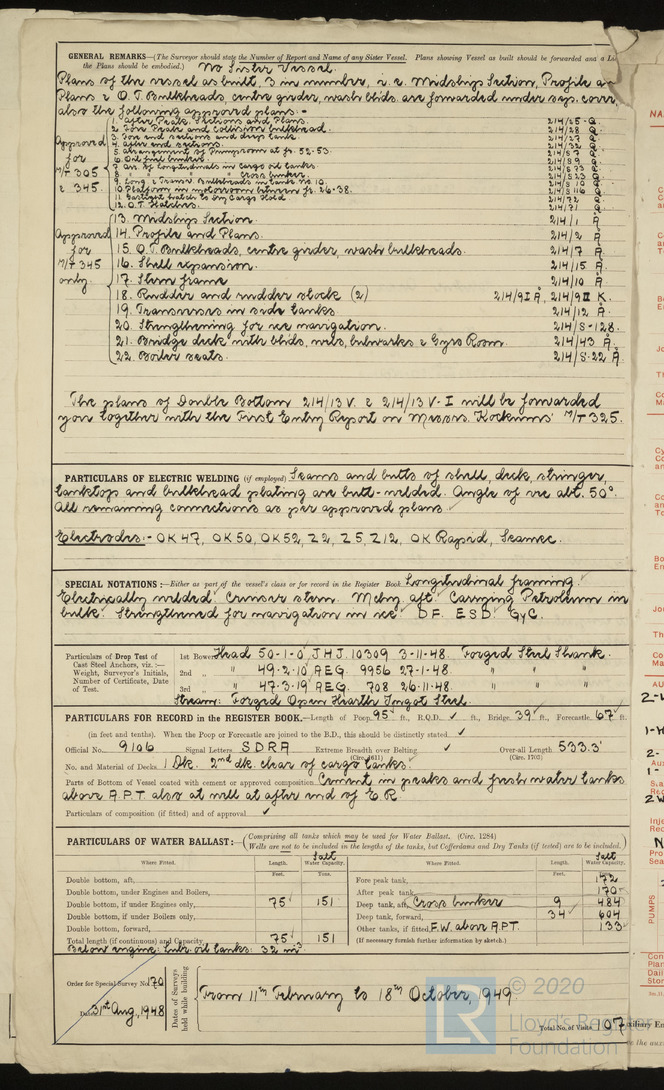 GENERAL REMARKS—(The Surveyor should state the Number of Report and Name of any Sister Vessel. Plans showing Vessel as built should be forwarded and a
the Plans should be embodied.) No Sister Vessel
Plans of the vessel as built, 3 in number, i e. Midships Section, Profile
Plans & O.T. Bulkheads, centre girder, wash blhds are forwarded under sep. cover,
also the following approved plans.-
Approved for M/T 305 & 345.
1. After Peak. Sections and Plans. 214/25 - G
2. Fore Peak and collision bulkhead. 214/28 G.
3. Fore end sections and deep tank 214/27 G
4. After end sections. 214/32 G
5. Arrangement of Pumproom at fr. 52-53. 214/57 G
6. Oil fuel bunker. 214/59 G.
7. Arr. of longitudinals in cargo oil tanks.
8. " " " " cross bunker.
9. Long. & Trans. Bulkheads in tank No 10.
10. Platform in motorroom between fr. 26-38.
11. Eartight hatch to Dry Cargo Hold 214/72 G
12. O.T. Hatches. 214/71 G.
Approved for M/T 345 only.
13. Midships Section. 214/1 Å
14. Profile and Plans. 214/2 Å
15. O.T. Bulkheads, centre girder, wash bulkheads. 214/7 Å
16. Shell expansion. 214/15 Å
17. Stern frame 214/10 Å
18. Rudder and rudder stock (2) 214/9I Å, 214/9II K.
19. Transverses in side tanks 214/12 Å.
20. Strengthening for ice navigation. 214/S-128.
21. Bridge deck with blhds, webs, bulwarks & Gyro Room. 214/43 Å.
22. Boiler seats. 214/S-22 Å
The plans of Double Bottom 214/13 V. & 214/13 V-I will be forwarded
you together with the First Entry Report on Messrs. Kockums' M/T 325.
PARTICULARS OF ELECTRIC WELDING (if employed) Seams and butts of shell, deck, stringer,
tanktops and bulkhead plating are butt-welded. Angle of vee abt. 50°.
All remaining connections as per approved plans.
Electrodes:- OK 47, OK 50, OK 52, Z 2, Z 5, Z 12, OK Rapid, Seamec.
SPECIAL NOTATIONS:—Either as part of the vessel's class or for record in the Register Book Longitudinal framing
Electrically welded. Cruiser stern. Mchy. aft. Carrying Petroleum in
bulk. Strengthened for navigation in ice DF. ESD. GyC.
Particulars of Drop Test of Cast Steel Anchors, viz.:— Weight, Surveyor's Initials, Number of Certificate, Date of Test.
1st Bower Head 50-1-0 J.H.J. 10309 3-11-48. Forged Steel Shank.
2nd " " 49.2.10 AEG. 9956 27-1-48. " " "
3rd " " 47.3.19 AEG. 708 26-11-48. " " "
Stream: Forged Open Hearth Ingot Steel.
PARTICULARS FOR RECORD in the REGISTER BOOK.—Length of Poop 95 ft., R.Q.D. ✓ ft., Bridge 39 ft., Forecastle 67 ft.
(in feet and tenths). When the Poop or Forecastle are joined to the B.D., this should be distinctly stated ✓
Official No. 9106 Signal Letters SDRA Extreme Breadth over Belting (Circ. 1611) ✓ Over-all Length (Circ. 1703) 533.3'
No. and Material of Decks 1 Dk. 2nd dk. clear of cargo tanks.
Parts of Bottom of Vessel coated with cement or approved composition Cement in peaks and fresh water tanks
above A.P.T. also at well at after end of E.R
Particulars of composition (if fitted) and of approval ✓
PARTICULARS OF WATER BALLAST:— (Comprising all tanks which may be used for Water Ballast. (Circ. 1284)
Wells are not to be included in the lengths of the tanks, but Cofferdams and Dry Tanks (if tested) are to be included.)
Where Fitted. Length. Salt Water Capacity. Where Fitted. Length. Salt Water Capacity.
Feet. Tons. Feet. Tons.
Double bottom, aft, Fore peak tank, 172
Double bottom, under Engines and Boilers, After peak tank, 170
Double bottom, if under Engines only, 75 151 Deep tank, aft, Cross bunker 9 484
Double bottom, if under Boilers only, Deep tank, forward, 34 604
Double bottom, forward, Other tanks, if fitted, F.W. above A.P.T. 133
Total length (if continuous) and Capacity 75 151 (If necessary furnish further information by sketch.)
Below engine: Lubr. oil tanks: 32 m³.
Order for Special Survey No. 70
Date 31st Aug, 1948
Dates of Surveys held while building
From 11th February to 18th October, 1949.
Total No. of Visits 107
© 2020
LR
Lloyd's Register
Foundation